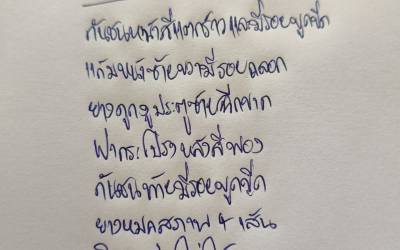 กันชนหน้าสีแตกร้าวและมีรอยขูดขีด
แก้มหน้าซ้ายขวามีรอยถลอก
ยางคูกระดูประตูซ้ายฉีกขาด
ฝากระโปรงหลังสีพอง
กันชนท้ายมีรอยขูดขีด
ยางหมดสภาพ 4 เส้น